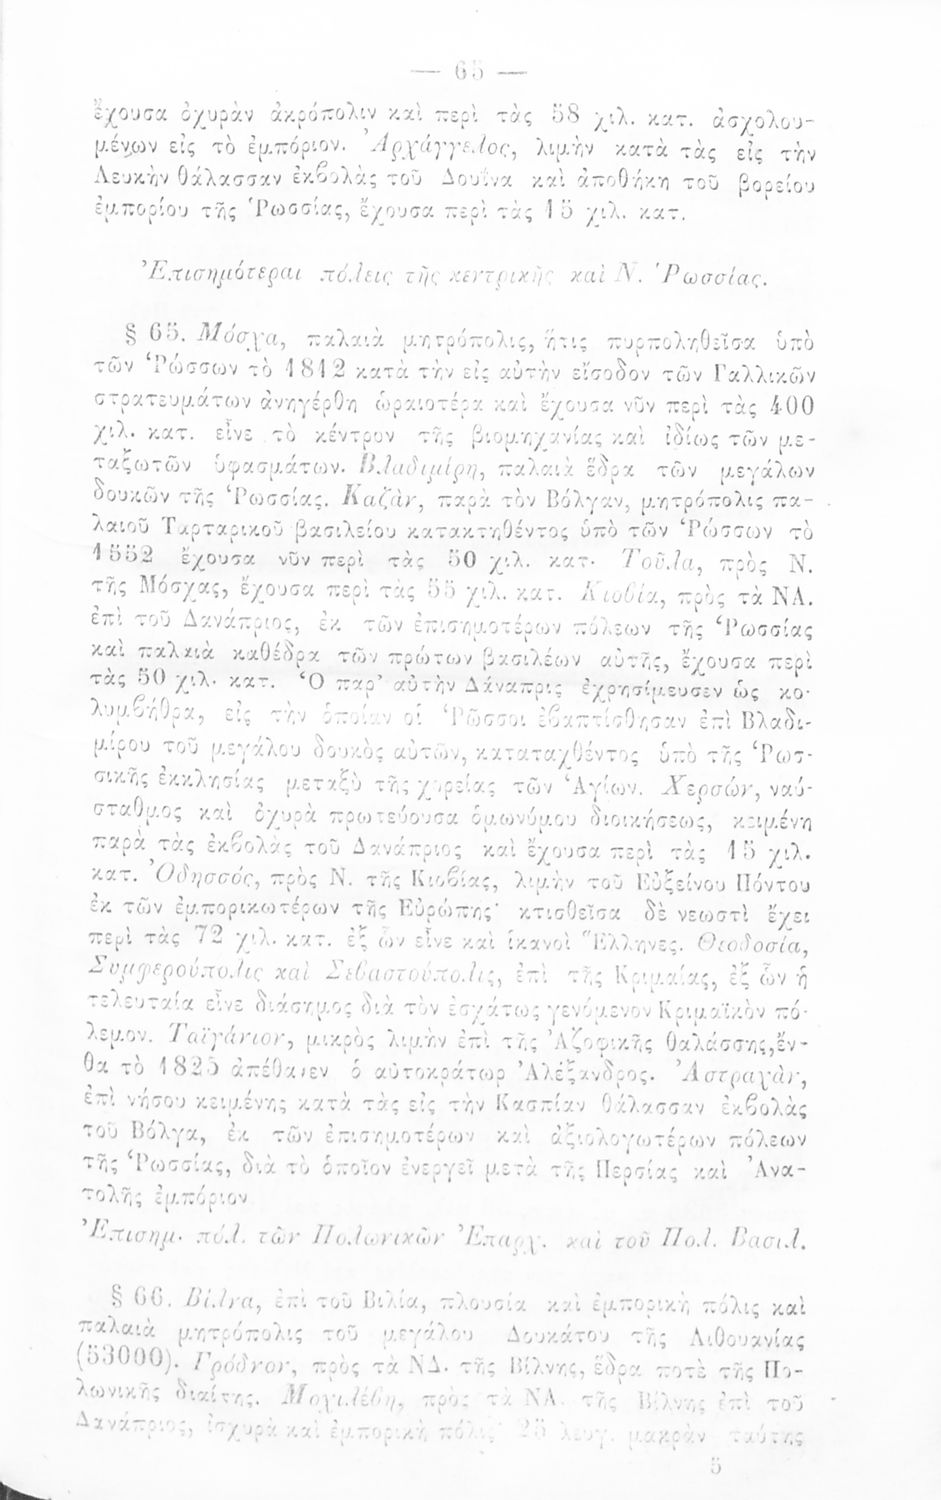 — 65 —
ἔχουσα ὀχυρὰν ἀκρόπολιν καὶ περὶ τὰς 58 χιλ. κατ. ἀσχολου-
μένων εἰς τὸ ἐμπόριον. Ἀρχάγγελος, λιμὴν κατὰ τὰς εἰς τὴν
Λευκὴν θάλασσαν ἐκβολὰς τοῦ Δουΐνα καὶ ἀποθήκη τοῦ βορείου
ἐμπορίου τῆς Ῥωσσίας, ἔχουσα περὶ τὰς 15 χιλ. κατ.
Ἐπισημότεραι πόλεις τῆς κεντρικῆς καὶ Ν. Ῥωσσίας.
§ 65. Μόσχα, παλαιὰ μητρόπολις, ἥτις πυρποληθεῖσα ὑπὸ
τῶν Ῥώσσων τὸ 1812 κατὰ τὴν εἰς αὐτὴν εἴσοδον τῶν Γαλλικῶν
στρατευμάτων ἀνηγέρθη ὡραιοτέρα καὶ ἔχουσα νῦν περὶ τὰς 400
χιλ. κατ. εἶνε τὸ κέντρον τῆς βιομηχανίας καὶ ἰδίως τῶν με-
ταξωτῶν ὑφασμάτων. Βλαδιμίρη, παλαιὰ ἕδρα τῶν μεγάλων
δουκῶν τῆς Ῥωσσίας. Καζὰν, παρὰ τὸν Βόλγαν, μητρόπολις πα-
λαιοῦ Ταρταρικοῦ βασιλείου κατακτηθέντος ὑπὸ τῶν Ῥώσσων τὸ
1552 ἔχουσα νῦν περὶ τὰς 50 χιλ. κατ. Τοῦλα, πρὸς Ν.
τῆς Μόσχας, ἔχουσα περὶ τὰς 55 χιλ. κατ. Κιοβία, πρὸς τὰ ΝΑ.
ἐπὶ τοῦ Δανάπριος, ἐκ τῶν ἐπισημοτέρων πόλεων τῆς Ῥωσσίας
καὶ παλαιὰ καθέδρα τῶν πρώτων βασιλέων αὐτῆς, ἔχουσα περὶ
τὰς 50 χιλ. κατ. Ὁ παρ' αὐτὴν Δάναπρις ἐχρησίμευσεν ὡς κο-
λυμβήθρα, εἰς τὴν ὁποίαν οἱ Ῥῶσσοι ἐβαπτίσθησαν ἐπὶ Βλαδι-
μίρου τοῦ μεγάλου δουκὸς αὐτῶν, καταταχθέντος ὑπὸ τῆς Ῥωσ-
σικῆς ἐκκλησίας μεταξὺ τῆς χορείας τῶν Ἁγίων. Χερσὼν, ναύ-
σταθμος καὶ ὀχυρὰ πρωτεύουσα ὁμωνύμου διοικήσεως, κειμένη
παρὰ τὰς ἐκβολὰς τοῦ Δανάπριος καὶ ἔχουσα περὶ τὰς 15 χιλ.
κατ. Ὀδησσός, πρὸς Ν. τῆς Κιοβίας, λιμὴν τοῦ Εὐξείνου Πόντου
ἐκ τῶν ἐμπορικωτέρων τῆς Εὐρώπης· κτισθεῖσα δὲ νεωστὶ ἔχει
περὶ τὰς 72 χιλ. κατ. ἐξ ὧν εἶνε καὶ ἱκανοὶ Ἕλληνες. Θεοδοσία,
Συμφερούπολις καὶ Σεβαστούπολις, ἐπὶ τῆς Κριμαίας, ἐξ ὧν ἡ
τελευταία εἶνε διάσημος διὰ τὸν ἐσχάτως γενόμενον Κριμαϊκὸν πό-
λεμον. Ταϊγάνιον, μικρὸς λιμὴν ἐπὶ τῆς Ἀζοφικῆς θαλάσσης, ἔν-
θα τὸ 1825 ἀπέθανεν ὁ αὐτοκράτωρ Ἀλέξανδρος. Ἀστραχὰν,
ἐπὶ νήσου κειμένης κατὰ τὰς εἰς τὴν Κασπίαν θάλασσαν ἐκβολὰς
τοῦ Βόλγα, ἐκ τῶν ἐπισημοτέρων καὶ ἀξιολογωτέρων πόλεων
τῆς Ῥωσσίας, διὰ τὸ ὁποῖον ἐνεργεῖ μετὰ τῆς Περσίας καὶ Ἀνα-
τολῆς ἐμπόριον
Ἐπισημ. πόλ. τῶν Πολωνικῶν Ἐπαρχ. καὶ τοῦ Πολ. Βασιλ.
§ 66. Βίλνα, ἐπὶ τοῦ Βιλία, πλουσία καὶ ἐμπορικὴ πόλις καὶ
παλαιὰ μητρόπολις τοῦ μεγάλου Δουκάτου τῆς Λιθουανίας
(53000). Γρόδνον, πρὸς τὰ ΝΔ. τῆς Βίλνης, ἕδρα ποτὲ τῆς Πο-
λωνικῆς διαίτης. Μοχιλέβη, πρὸς τὰ ΝΑ. τῆς Βίλνης ἐπὶ τοῦ
Δανάπριος, ἰσχυρὰ καὶ ἐμπορικὴ πόλις 25 λευγ. μακρὰν ταύτης
5